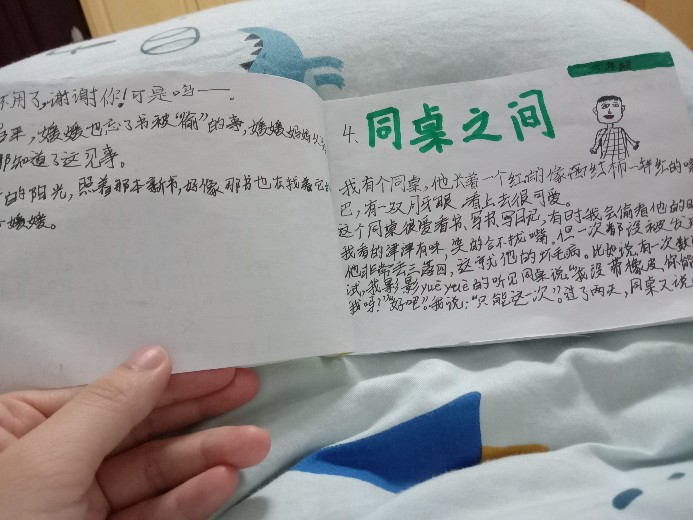 不用了,谢谢你!可是哈——。
来,媛媛也忘了书被“偷”的事,媛媛妈妈
都知道了这见事。
的阳光,照着那本新书,好像那书也在找着它
媛媛。
4、同桌之间
我有个同桌,他长着一个红的像西红柿一样红的嘴
巴,有一双月牙眼,看上去很可爱。
这个同桌很爱看书、写书、写日记,有时我会偷看他的日
我看的津津有味,笑的合不拢嘴。但一次都没被发
他非常丢三落四,这就他的坏毛病。比如说,有一次数
试,我影影yuē yuē的听见同桌说:“我没带橡皮,你能
我吗?”“好吧”。我说:“只能这一次”。过了两天,同桌又说